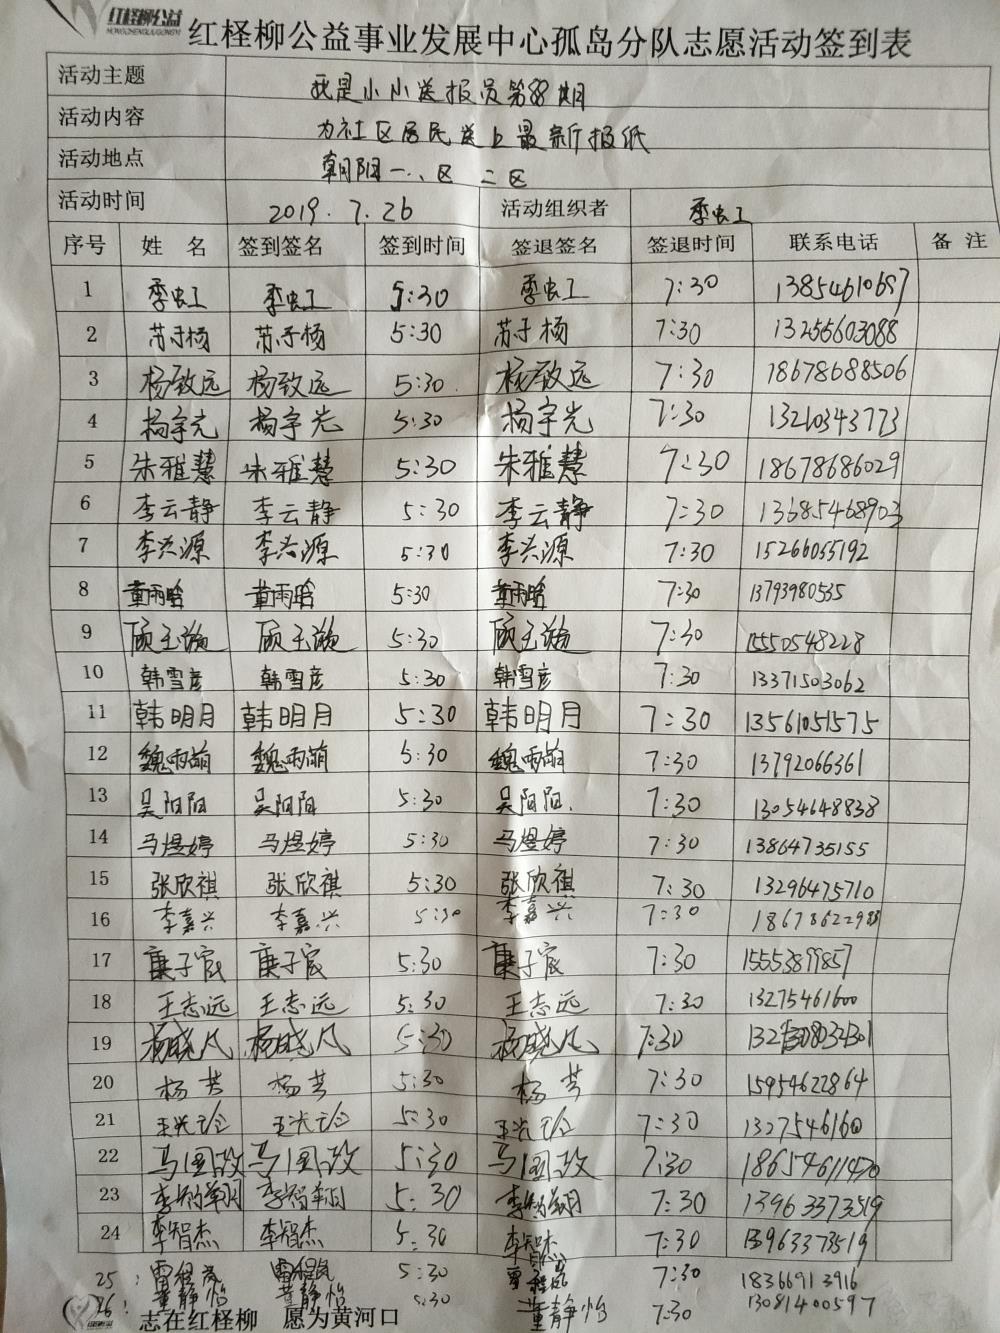 红柽柳公益
HONGCHENGLIUGONGYI
红柽柳公益事业发展中心孤岛分队志愿活动签到表
活动主题 我是小小送报员第88期
活动内容 为社区居民送上最新报纸
活动地点 朝阳一、区 二区
活动时间 2019.7.26 活动组织者 季虫工
序号 姓 名 签到签名 签到时间 签退签名 签退时间 联系电话 备 注
1 季虫工 季虫工 5:30 季虫工 7:30 13854610697
2 苏子杨 苏子杨 5:30 苏子杨 7:30 13256603088
3 杨致远 杨致远 5:30 杨致远 7:30 18678688506
4 杨宇光 杨宇光 5:30 杨宇光 7:30 13210343773
5 朱雅慧 朱雅慧 5:30 朱雅慧 7:30 18678686029
6 李云静 李云静 5:30 李云静 7:30 13685468903
7 李兴源 李兴源 5:30 李兴源 7:30 15266055192
8 董雨晗 董雨晗 5:30 董雨晗 7:30 13793980535
9 顾玉璇 顾玉璇 5:30 顾玉璇 7:30 15550548228
10 韩雪彦 韩雪彦 5:30 韩雪彦 7:30 13371503062
11 韩明月 韩明月 5:30 韩明月 7:30 13561051575
12 魏雨萌 魏雨萌 5:30 魏雨萌 7:30 13792066361
13 吴阳阳 吴阳阳 5:30 吴阳阳. 7:30 13054648838
14 马煜婷 马煜婷 5:30 马煜婷 7:30 13864735155
15 张欣祺 张欣祺 5:30 张欣祺 7:30 13296475710
16 李嘉兴 李嘉兴 5:30 李嘉兴 7:30 18678622988
17 庚子宸 庚子宸 5:30 庚子宸 7:30 15553899857
18 王志远 王志远 5:30 王志远 7:30 13275461600
19 杨晓凡 杨晓凡 5:30 杨晓凡 7:30
20 杨芳 杨芳 5:30 杨芳 7:30 15954622864
21 5:30 7:30 13275461600
22 马国政 马国政 5:30 马国政 7:30 18654611470
23 李智翔 李智翔 5:30 李智翔 7:30 13963373519
24 李智杰 李智杰 5:30 李智杰 7:30 13963373519
25: 5:30 7:30 18366913916
26: 董静怡 董静怡 5:30 董静怡 7:30 13081400597
志在红柽柳 愿为黄河口